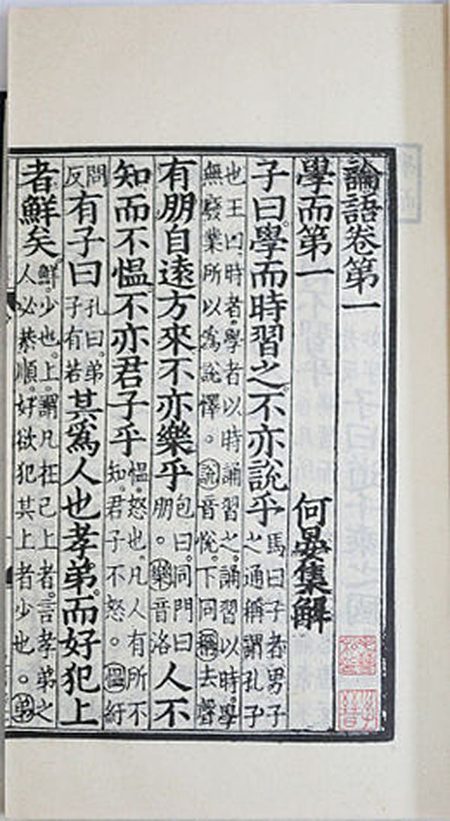 論語卷第一
學而第一 何晏集解
子曰。學而時習之。不亦說乎 馬曰子者男子之通稱謂孔子
也王曰時者。學者以時誦習之。誦習以時學
無廢業所以為說懌。說音悅。下同稱去聲
有朋自遠方來不亦樂乎 包曰。同門曰朋。樂音洛 人不
知而不慍不亦君子乎 慍怒也。凡人有所不知君子不怒。慍紆
問反 有子曰 孔曰。弟子有若 其爲人也孝弟。而好犯上
者鮮矣 鮮少也。上。謂凡在己上者。言孝弟之人必恭順。好欲犯其上者少也。弟